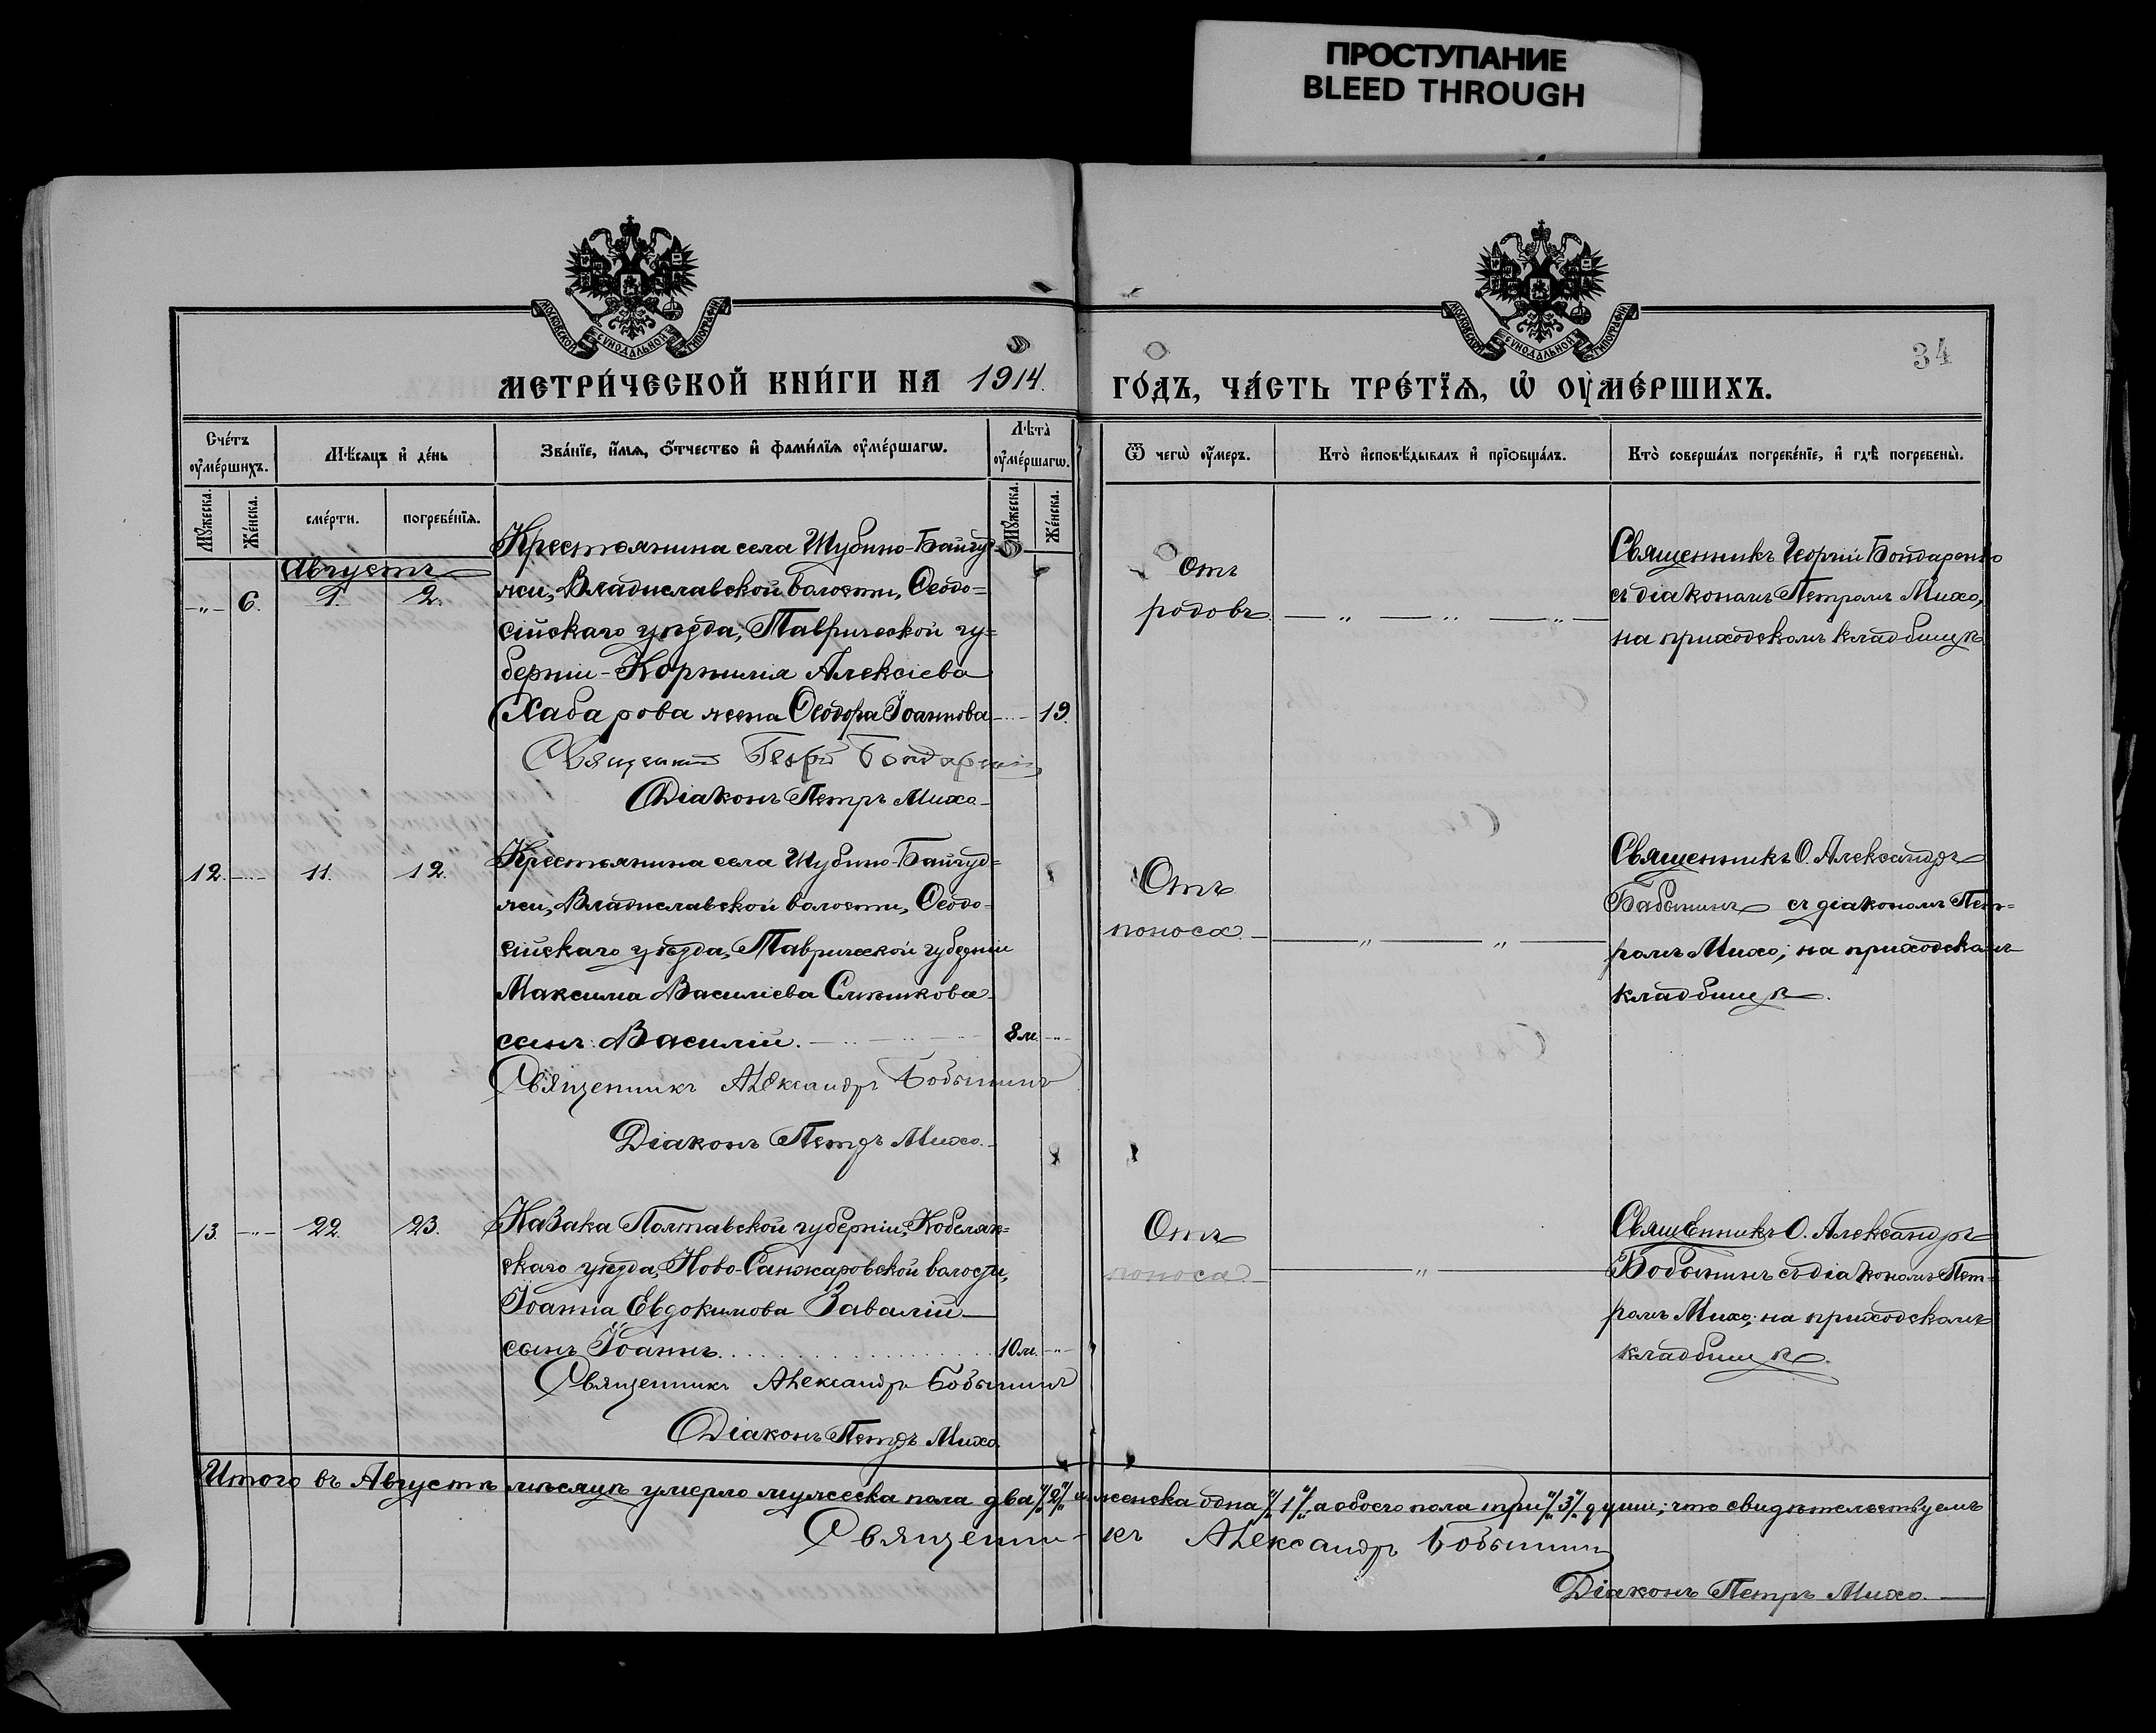 ПРОСТУПАНИЕ
BLEED THROUGH
МОСКОВСКОЙ СѴНОДАЛЬНОЙ ТИПОГРАФІИ
МОСКОВСКОЙ СѴНОДАЛЬНОЙ ТИПОГРАФІИ
34
МЕТРИ́ЧЕСКОЙ КНИ́ГИ НА 1914. ГО́ДЪ, ЧА́СТЬ ТРЕ́ТЇѦ, Ѡ҆ ОУ҆МЕ́РШИХЪ.
Сче́тъ оу҆ме́ршихъ.
Мѣ́сяцъ и҆ де́нь
Зва́нїе, и҆́мя, ѻ҆́тчество и҆ фами́лїя оу҆ме́ршагѡ.
Лѣта̀ оу҆ме́ршагѡ.
Ѿ чегѡ̀ оу҆́меръ.
Кто̀ и҆сповѣ́дывалъ и҆ прїѻбща́лъ.
Кто̀ соверша́лъ погребе́нїе, и҆ гдѣ̀ погребены̀.
Мꙋ́жеска.
Же́нска.
сме́рти.
погребе́нїя.
Мꙋ́жеска.
Же́нска.
Августъ
-„- 6. 1. 2.
Крестьянина села Шубино-Байгуд-
жи, Владиславской волости, Ѳеодо=
сійскаго уѣзда, Таврической гу=
берніи - Корнилія Алексіева
Хабарова жена Ѳеодора Іоаннова -..- 19.
Священникъ Георгій Бондаренко
Діаконъ Петръ Михо-
Отъ
родовъ. — „ — „ — „ —
Священникъ Георгій Бондаренко
съ діакономъ Петромъ Михо,
на приходскомъ кладбищѣ
12. -..- 11. 12.
Крестьянина села Шубино-Байгуд=
жи, Владиславской волости, Ѳеодо-
сійскаго уѣзда, Таврической губерніи
Максима Василіева
сынъ: Василій. 8 м. -„-
Священникъ Александръ Бобынинъ
Діаконъ Петръ Михо.-
Отъ
поноса. — „ — „ —
Священникъ О. Александръ
Бабынинъ съ діакономъ Пет=
ромъ Михо; на приходскомъ
кладбищѣ.
13. -„- 22. 23.
Казака Полтавской губерніи, Кобеляк=
скаго уѣзда, Ново-Санжаровской волости,
Іоанна Евдокимова Завалій
сынъ Іоаннъ. 10 м. -„-
Священникъ Александръ Бобынинъ
Діаконъ Петръ Михо.
Отъ
поноса. — „ —
Священникъ О. Александръ
Бобынинъ съ діакономъ Пет-
ромъ Михо; на приходскомъ
кладбищѣ.
Итого въ Августѣ мѣсяцѣ умерло мужеска пола два /2/ и женска одна /1/, а обоего пола три /3/ души; что свидѣтельствуемъ
Священникъ Александръ Бобынинъ
Діаконъ Петръ Михо.